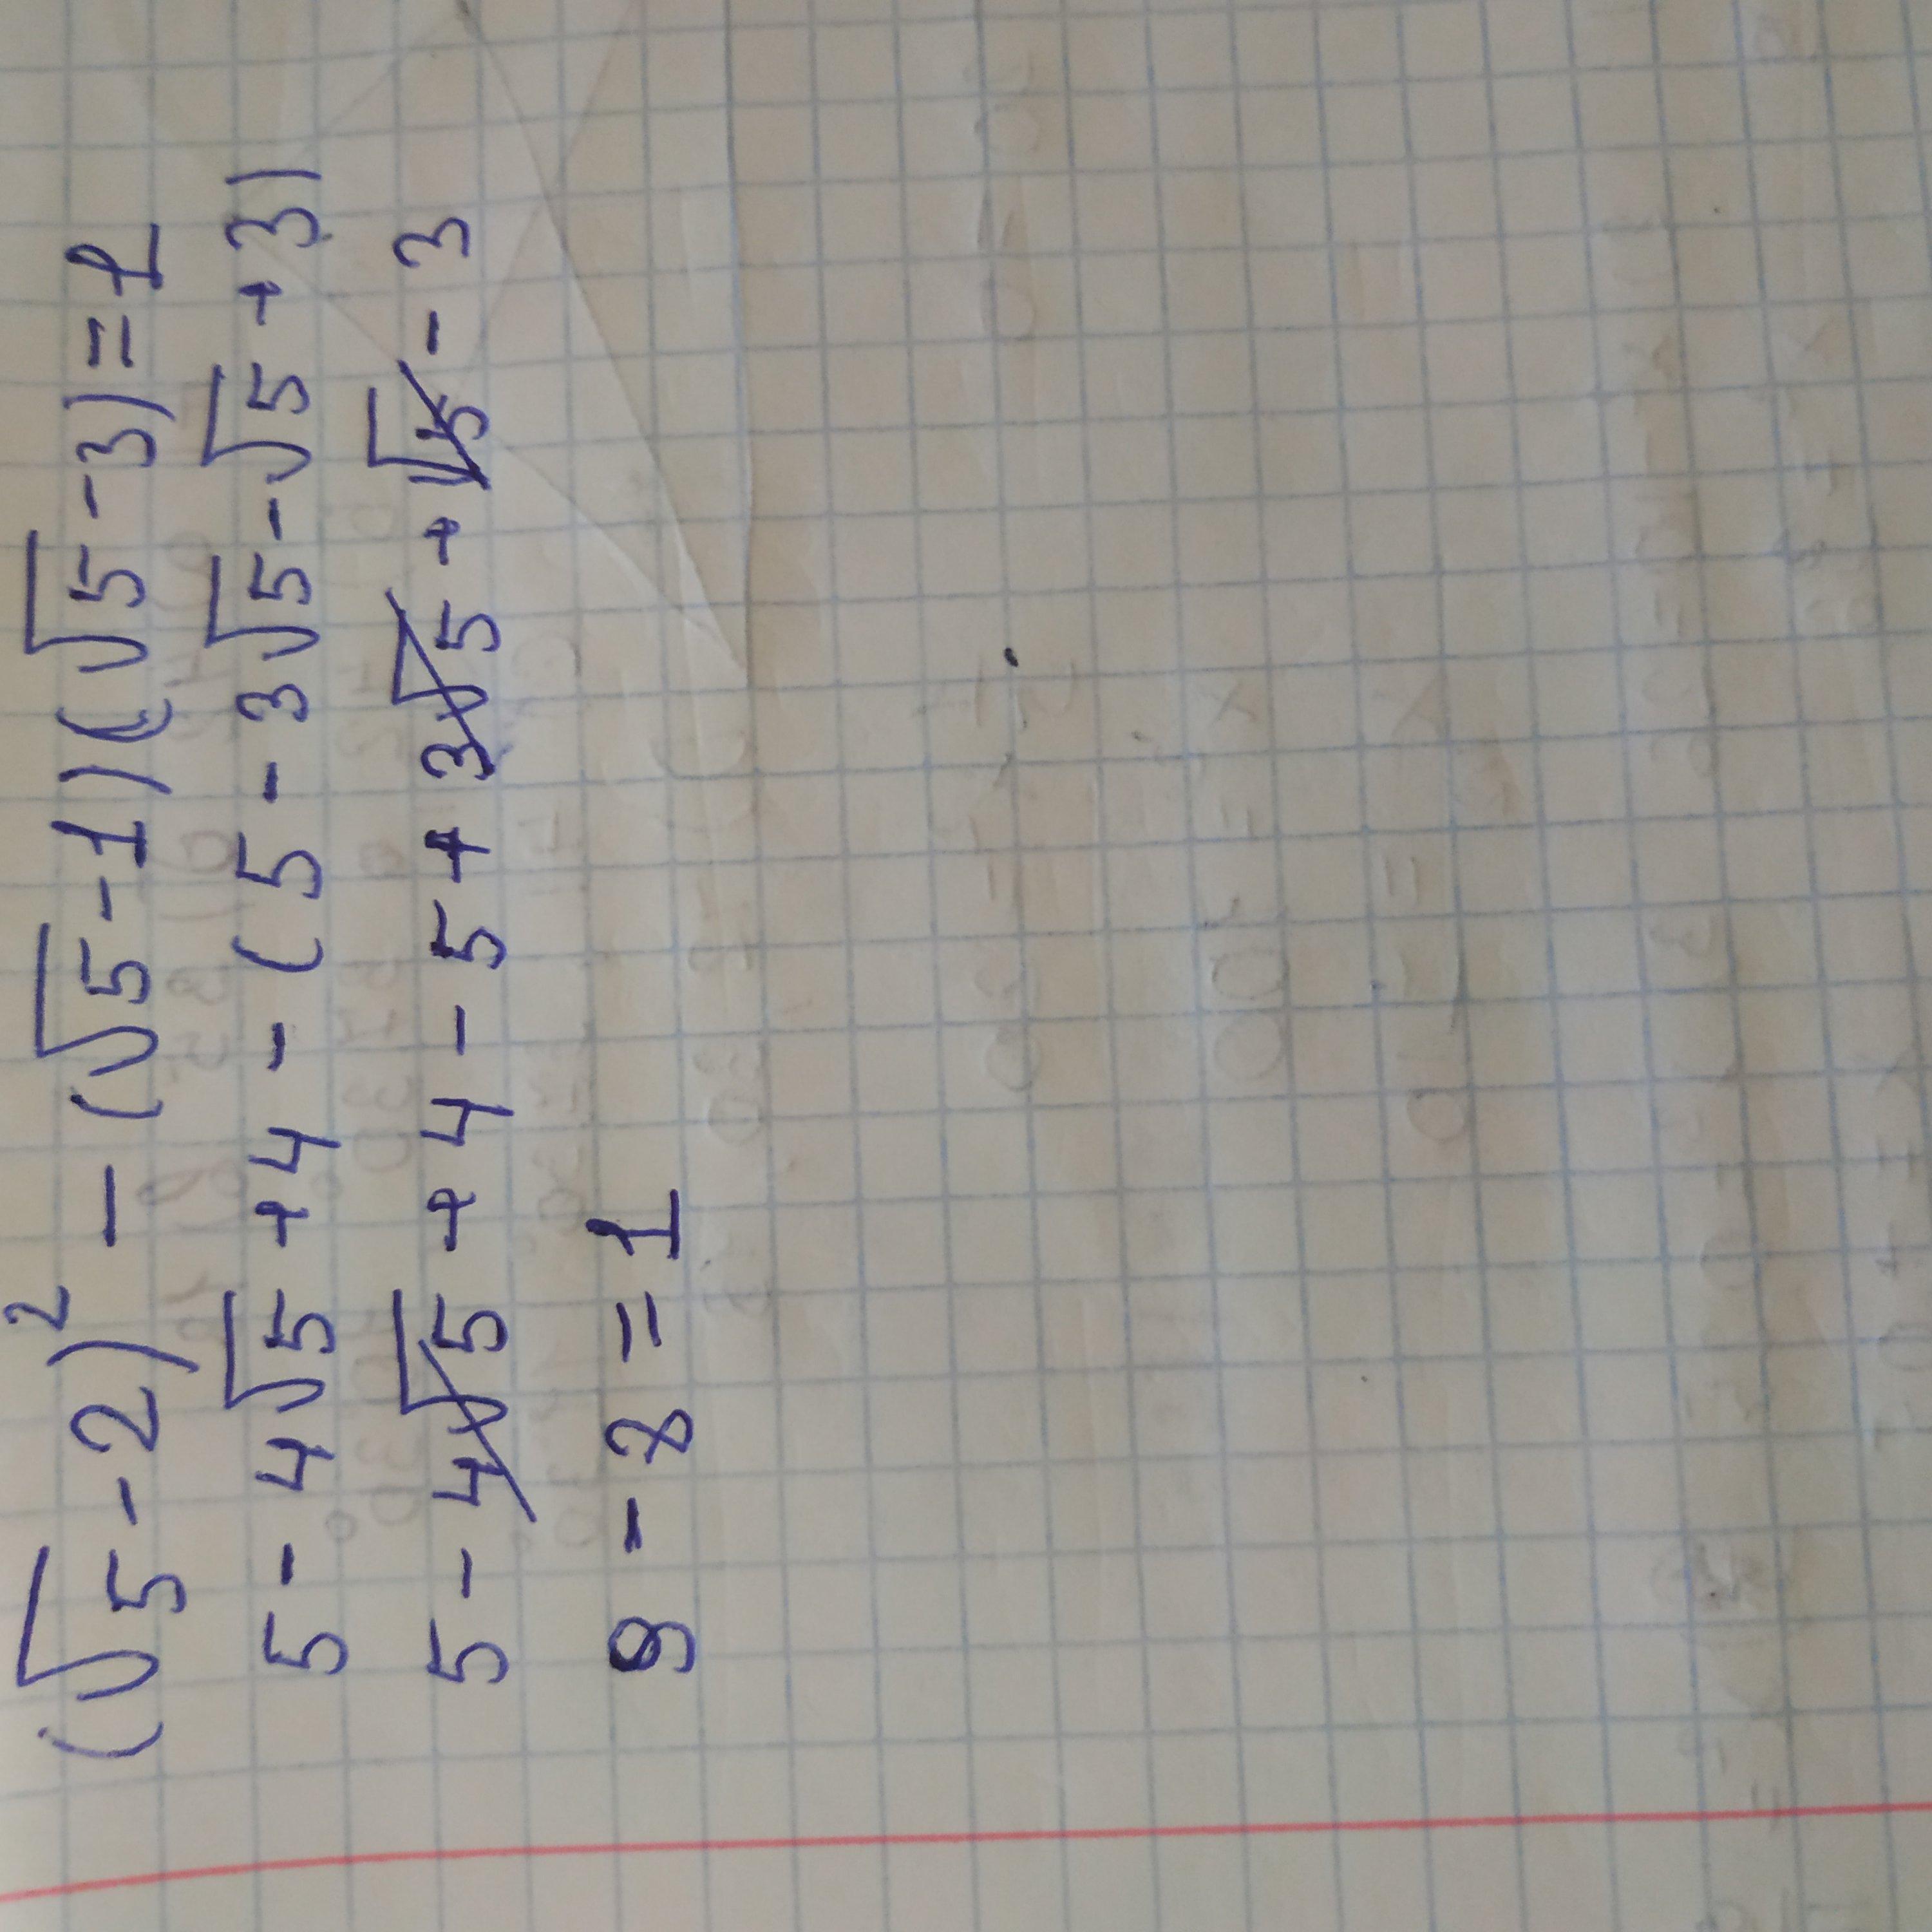 (√5 - 2)² - (√5 - 1)(√5 - 3) = 1
5 - 4√5 + 4 - (5 - 3√5 - √5 + 3)
5 - 4√5 + 4 - 5 + 3√5 + √5 - 3
9 - 8 = 1